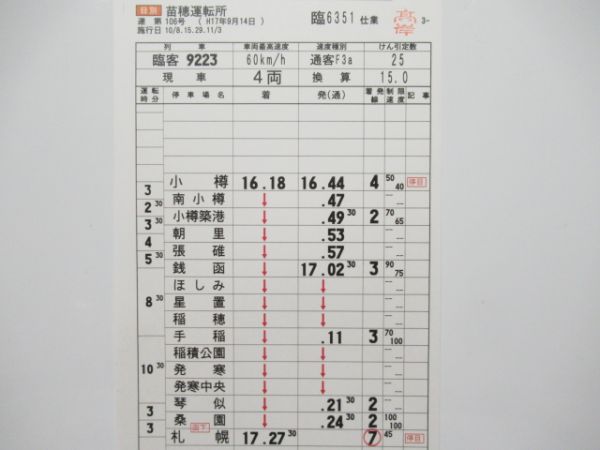 特別 苗穂運転所
運 第 106号 ( H17年9月14日 ) 臨6351 仕業 高岸 3-
施行日 10/8.15.29.11/3
列車 車両最高速度 速度種別 けん引定数
臨客 9223 60km/h 通客F3a 25
現車 4両 換算 15.0
運転時分 停車場名 着 発(通) 着発線 制限速度 記事
小樽 16.18 16.44 4 50 40 停目
3
南小樽 ↓ .47
2 30
小樽築港 ↓ .49 30 2 70 65
3 30
朝里 ↓ .53
4
張碓 ↓ .57
5 30
銭函 ↓ 17.02 30 3 90 75
ほしみ ↓ ↓
8 30
星置 ↓ ↓
稲穂 ↓ ↓
手稲 ↓ .11 3 70 100
稲積公園 ↓ ↓
10 30
発寒 ↓ ↓
発寒中央 ↓ ↓
琴似 ↓ .21 30 2
3
桑園 ↓ .24 30 2 100 100
3
札幌 17.27 30 7 45 停目